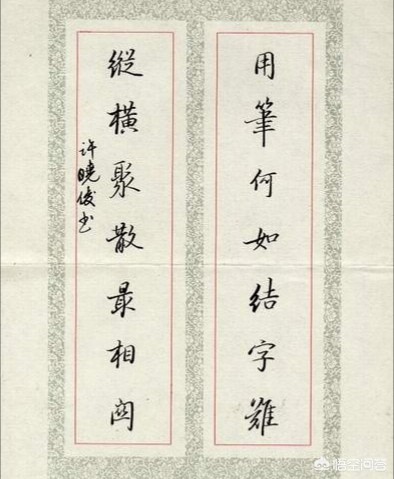 用筆何如結字難
縱橫聚散最相関
许曉俊书
悟空问答